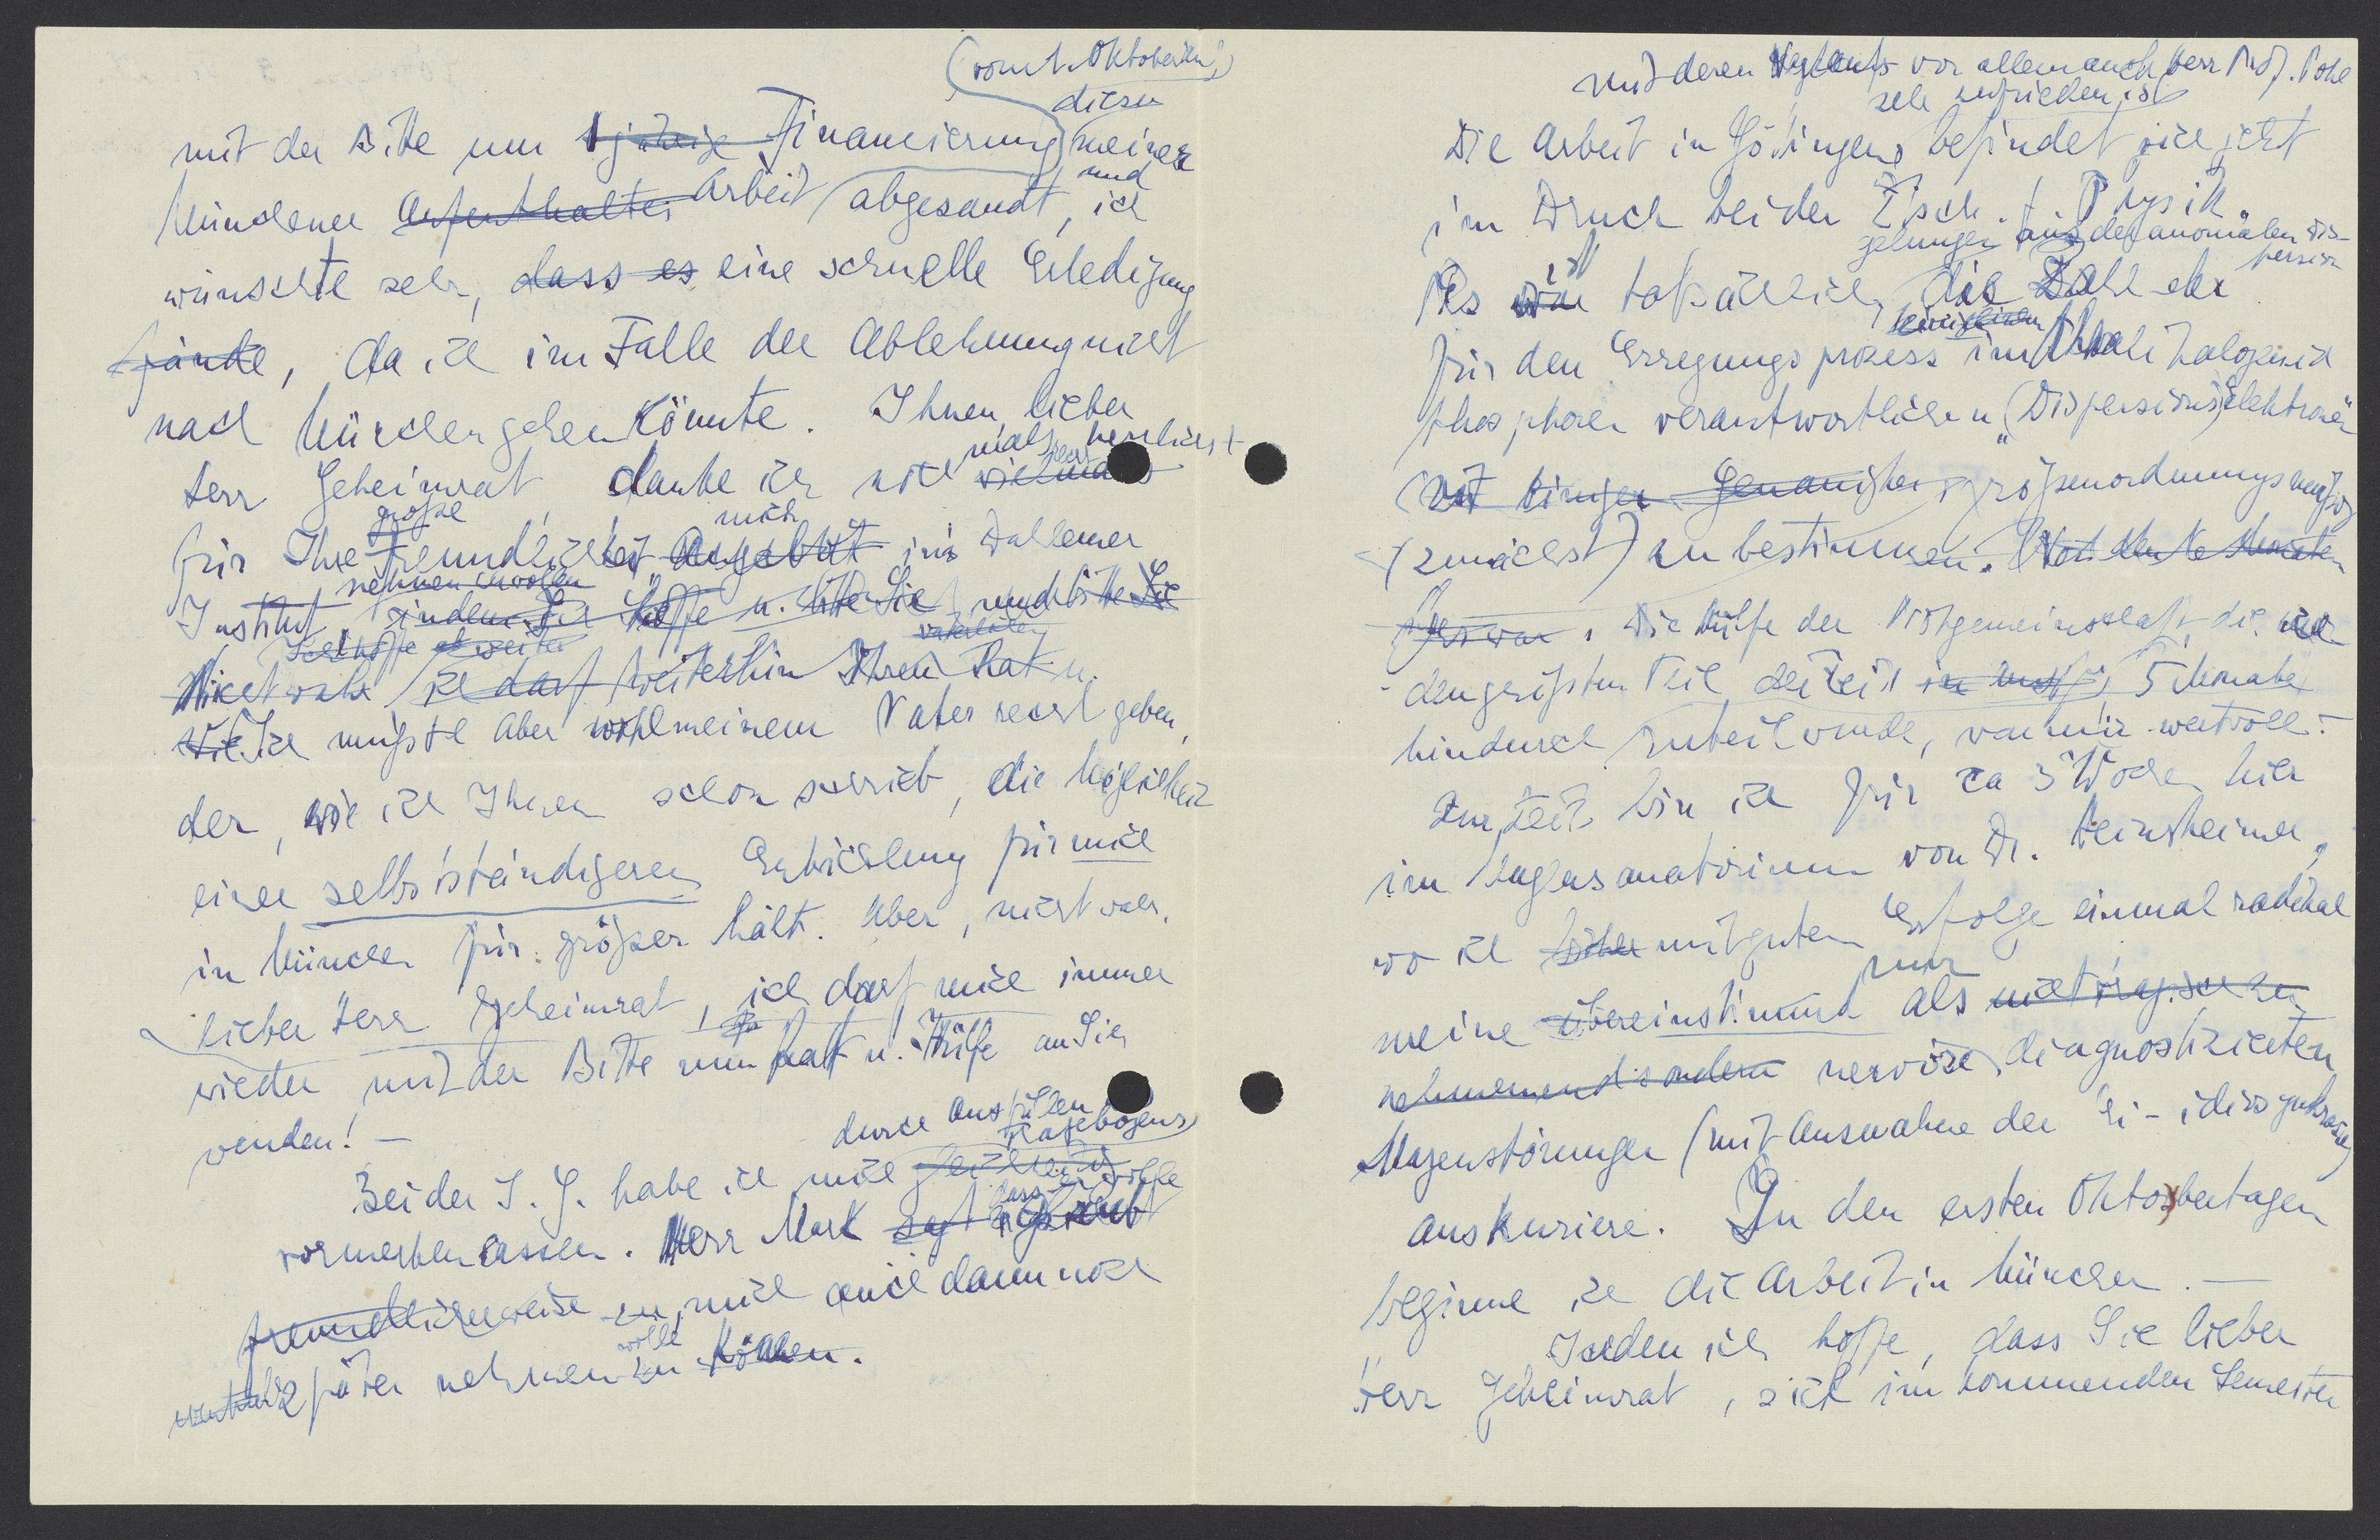 (vom 1. Oktober an!)
diesen
mit der Bitte um 1 jährige Financierung meiner
Münchener Aufenthaltes Arbeit abgesandt, und ich
wünschte sehr, dass es eine schnelle Erledigung
fände, da ich im Falle der Ablehnung nicht
nach München gehen könnte. Ihnen, lieber
Herr Geheimrat, danke ich nochmals herzlichst vielmals
für Ihre große Freundlichkeit Angebot mich ins Dahlemer
Institut nehmen zu wollen indem ich hoffe u. bitte Sie und bitte Sie
Ich hoffe
Nicht wahr ich darf weiterhin Ihren Rat u.
Ich müßte aber wohl meinem Vater recht geben,
der, wie ich Ihnen schon schrieb, die Möglichkeit
einer selbstständigeren Entwicklung für mich
in München für größer hält. Aber, nicht wahr,
lieber Herr Geheimrat, ich darf mich immer
wieder mit der Bitte um Rat u. Hülfe an Sie
wenden! —
durch Ausfüllen
Fragebogens
Bei der I. G. habe ich mich
vormerken lassen. Herr Mark sagt dass er hoffe
freundlicherweise zu, mich auch dann noch
später nehmen zu wolle können.
mit deren Verlauf vor allem auch Herr Prof. Pohl
sehr zufrieden ist
Die Arbeit in Göttingen, befindet sich jetzt
im Druck bei der Ztsch. f. Physik.
gelungen aus der anomalen Dis-
persion
Es war ist tatsächlich, die Zahl der
für den Erregungsprozess im Alkalihalogenid
phosphoren verantwortlichen „(Dispersions)elektronen"
(mit einiger Genauigkeit, größenordnungsmäßig
(zunächst) zu bestimmen.
Die Hülfe der Notgemeinschaft, die mir
den größten Teil der Zeit 5 Monate
hindurch zuteil wurde, war mir wertvoll. –
Zur Zeit bin ich für ca 3 Wochen hier
im Magensanatorium von Dr. Heinsheimer,
wo ich mit gutem Erfolge einmal radikal
meine übereinstimmend als nur nicht tragisch zu
nehmenend sondern nervöse, diagnostizierten
Magenstörungen (mit Ausnahme der Ei-idiosynkrasie)
auskuriere. In den ersten Oktobertagen
beginne ich die Arbeit in München. —
Indem ich hoffe, dass Sie lieber
Herr Geheimrat, sich im kommenden Semester